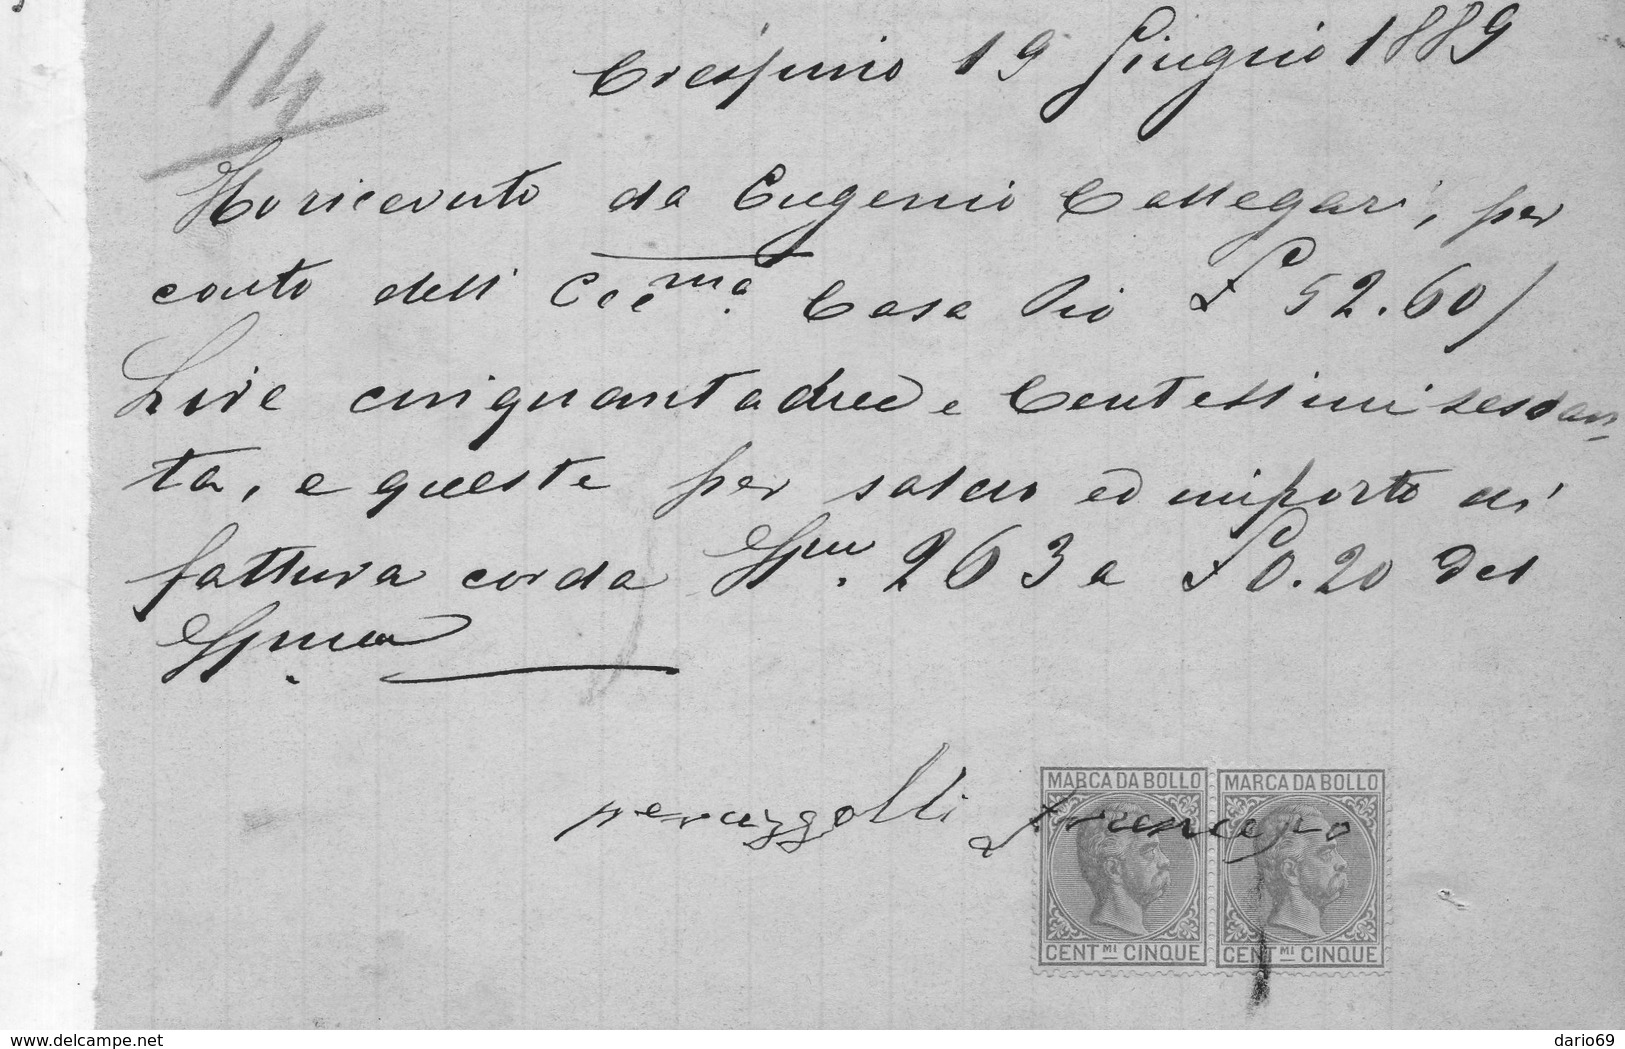 14
Crespino 19 Giugno 1889
Ho ricevuto da Eugenio Callegari, per
conto dell' Ecc.ma Casa Pio £ 52.60/
Lire cinquantadue e Centessimi sessan-
ta, e queste per saldo ed importo di
fattura corda 263 a £ 0.20 del
perazzolli Francesco
MARCA DA BOLLO MARCA DA BOLLO
CENT.MI CINQUE CENT.MI CINQUE
www.delcampe.net dario69